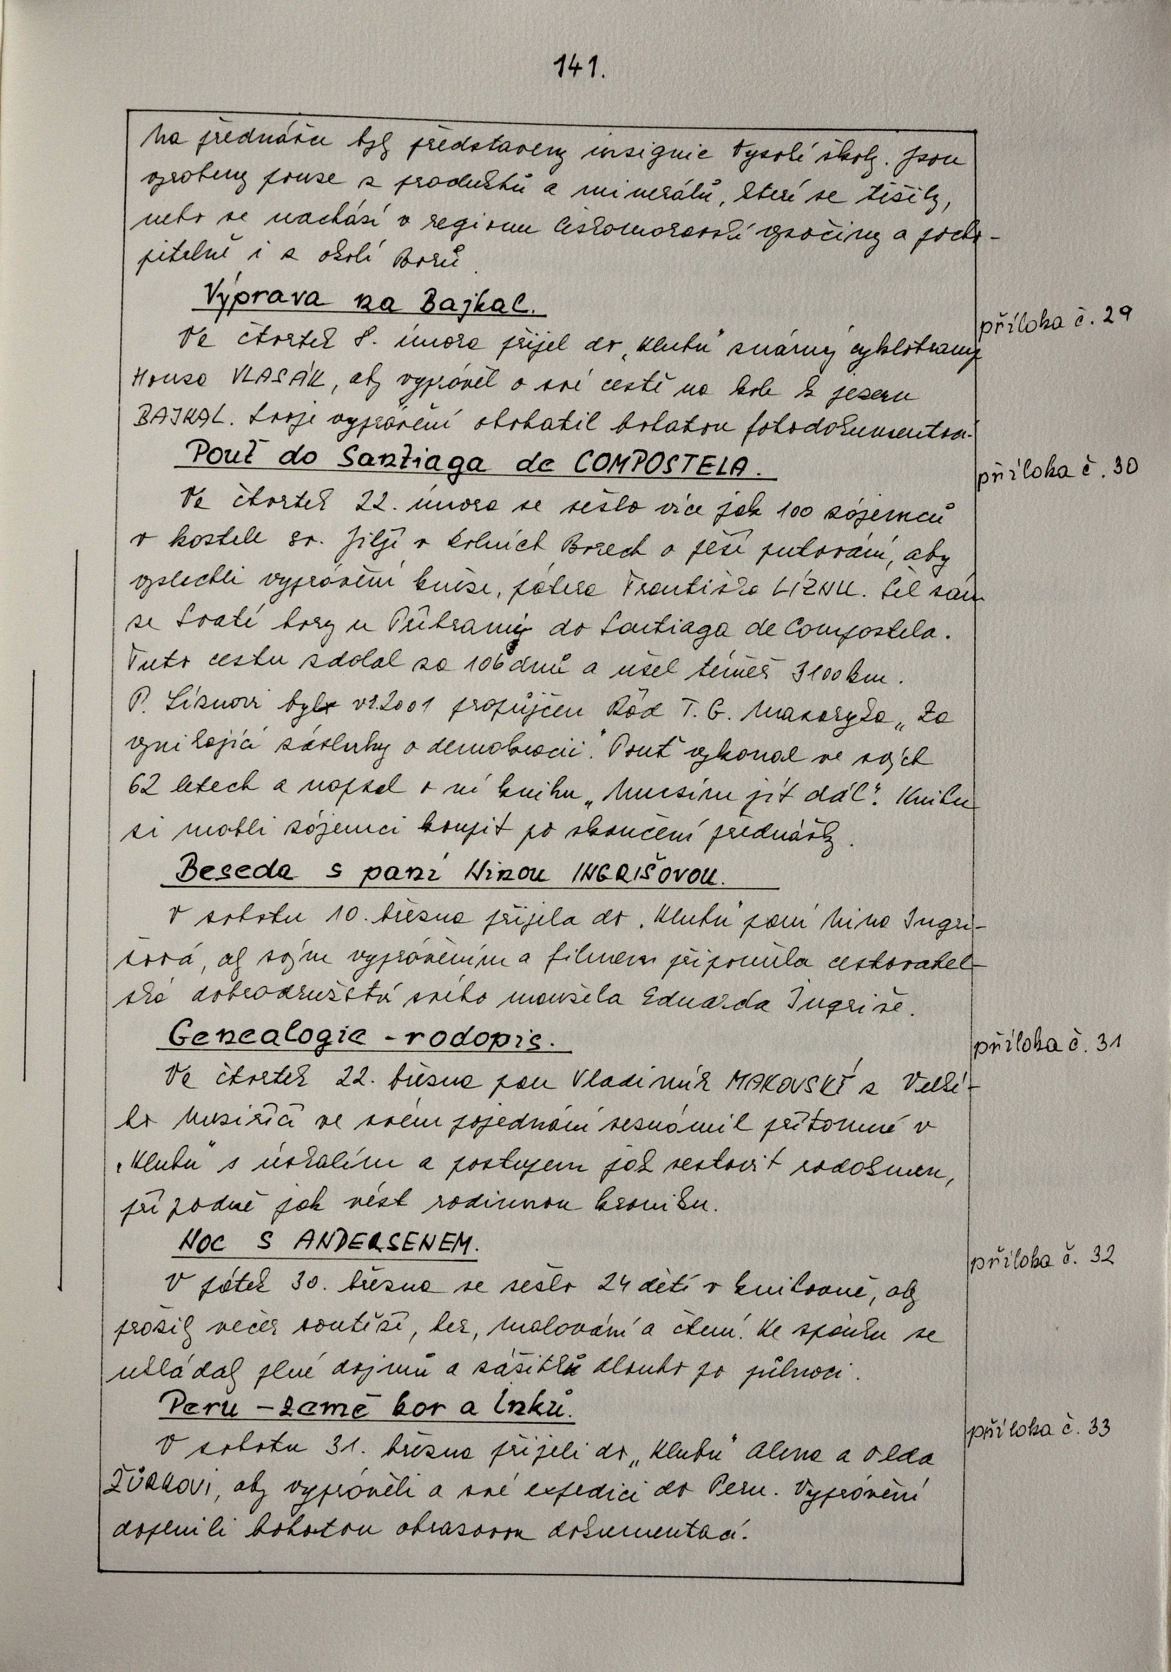 141.
Na přednášce byly představeny insignie Vysoké školy. Jsou
vyrobeny pouze z produktů a minerálů, které se těžily,
nebo se nachází v regionu Českomoravské vysočiny a pocho-
pitelně i z okolí Borů.
Výprava na Bajkal.
příloha č. 29
Ve čtvrtek 8. února přijel do „Klubu" známý cyklotramp
Honza VLASÁK, aby vyprávěl o své cestě na kole k jezeru
BAJKAL. Svoje vyprávění obohatil bohatou fotodokumentací.
Pouť do Santiaga de COMPOSTELA.
příloha č. 30
Ve čtvrtek 22. února se sešlo více jak 100 zájemců
v kostele sv. Jiljí v Dolních Borech o pěší putování, aby
vyslechli vyprávění kněze, pátera Františka LÍZNU. Šel sám
ze Svaté hory u Příbrami do Santiaga de Compostela.
Tuto cestu zdolal za 106 dnů a ušel téměř 3100 km.
P. Líznovi byl v r. 2001 propůjčen Řád T. G. Masaryka „Za
vynikající zásluhy o demokracii." Pouť vykonal ve svých
62 letech a napsal o ní knihu „Musím jít dál". Knihu
si mohli zájemci koupit po skončení přednášky.
Beseda s paní Ninou INGRIŠOVOU.
V sobotu 10. března přijela do „Klubu" paní Nina Ingri-
šová, aby svým vyprávěním a filmem připomněla cestovatel-
ská dobrodružství svého manžela Eduarda Ingriše.
Genealogie - rodopis.
příloha č. 31
Ve čtvrtek 22. března pan Vladimír MAKOVSKÝ z Velké-
ho Meziříčí ve svém pojednání seznámil přítomné v
„Klubu" s úskalím a postupem jak sestavit rodokmen,
případně jak vést rodinnou kroniku.
NOC S ANDERSENEM.
příloha č. 32
V pátek 30. března se sešlo 24 dětí v knihovně, aby
prožily večer soutěží, her, malování a čtení. Ke spánku se
ukládaly plné dojmů a zážitků dlouho po půlnoci.
Peru - země hor a Inků.
příloha č. 33
V sobotu 31. března přijeli do „Klubu" Alena a Olda
ŽŮRKOVI, aby vyprávěli o své expedici do Peru. Vyprávění
doplnili bohatou obrazovou dokumentací.